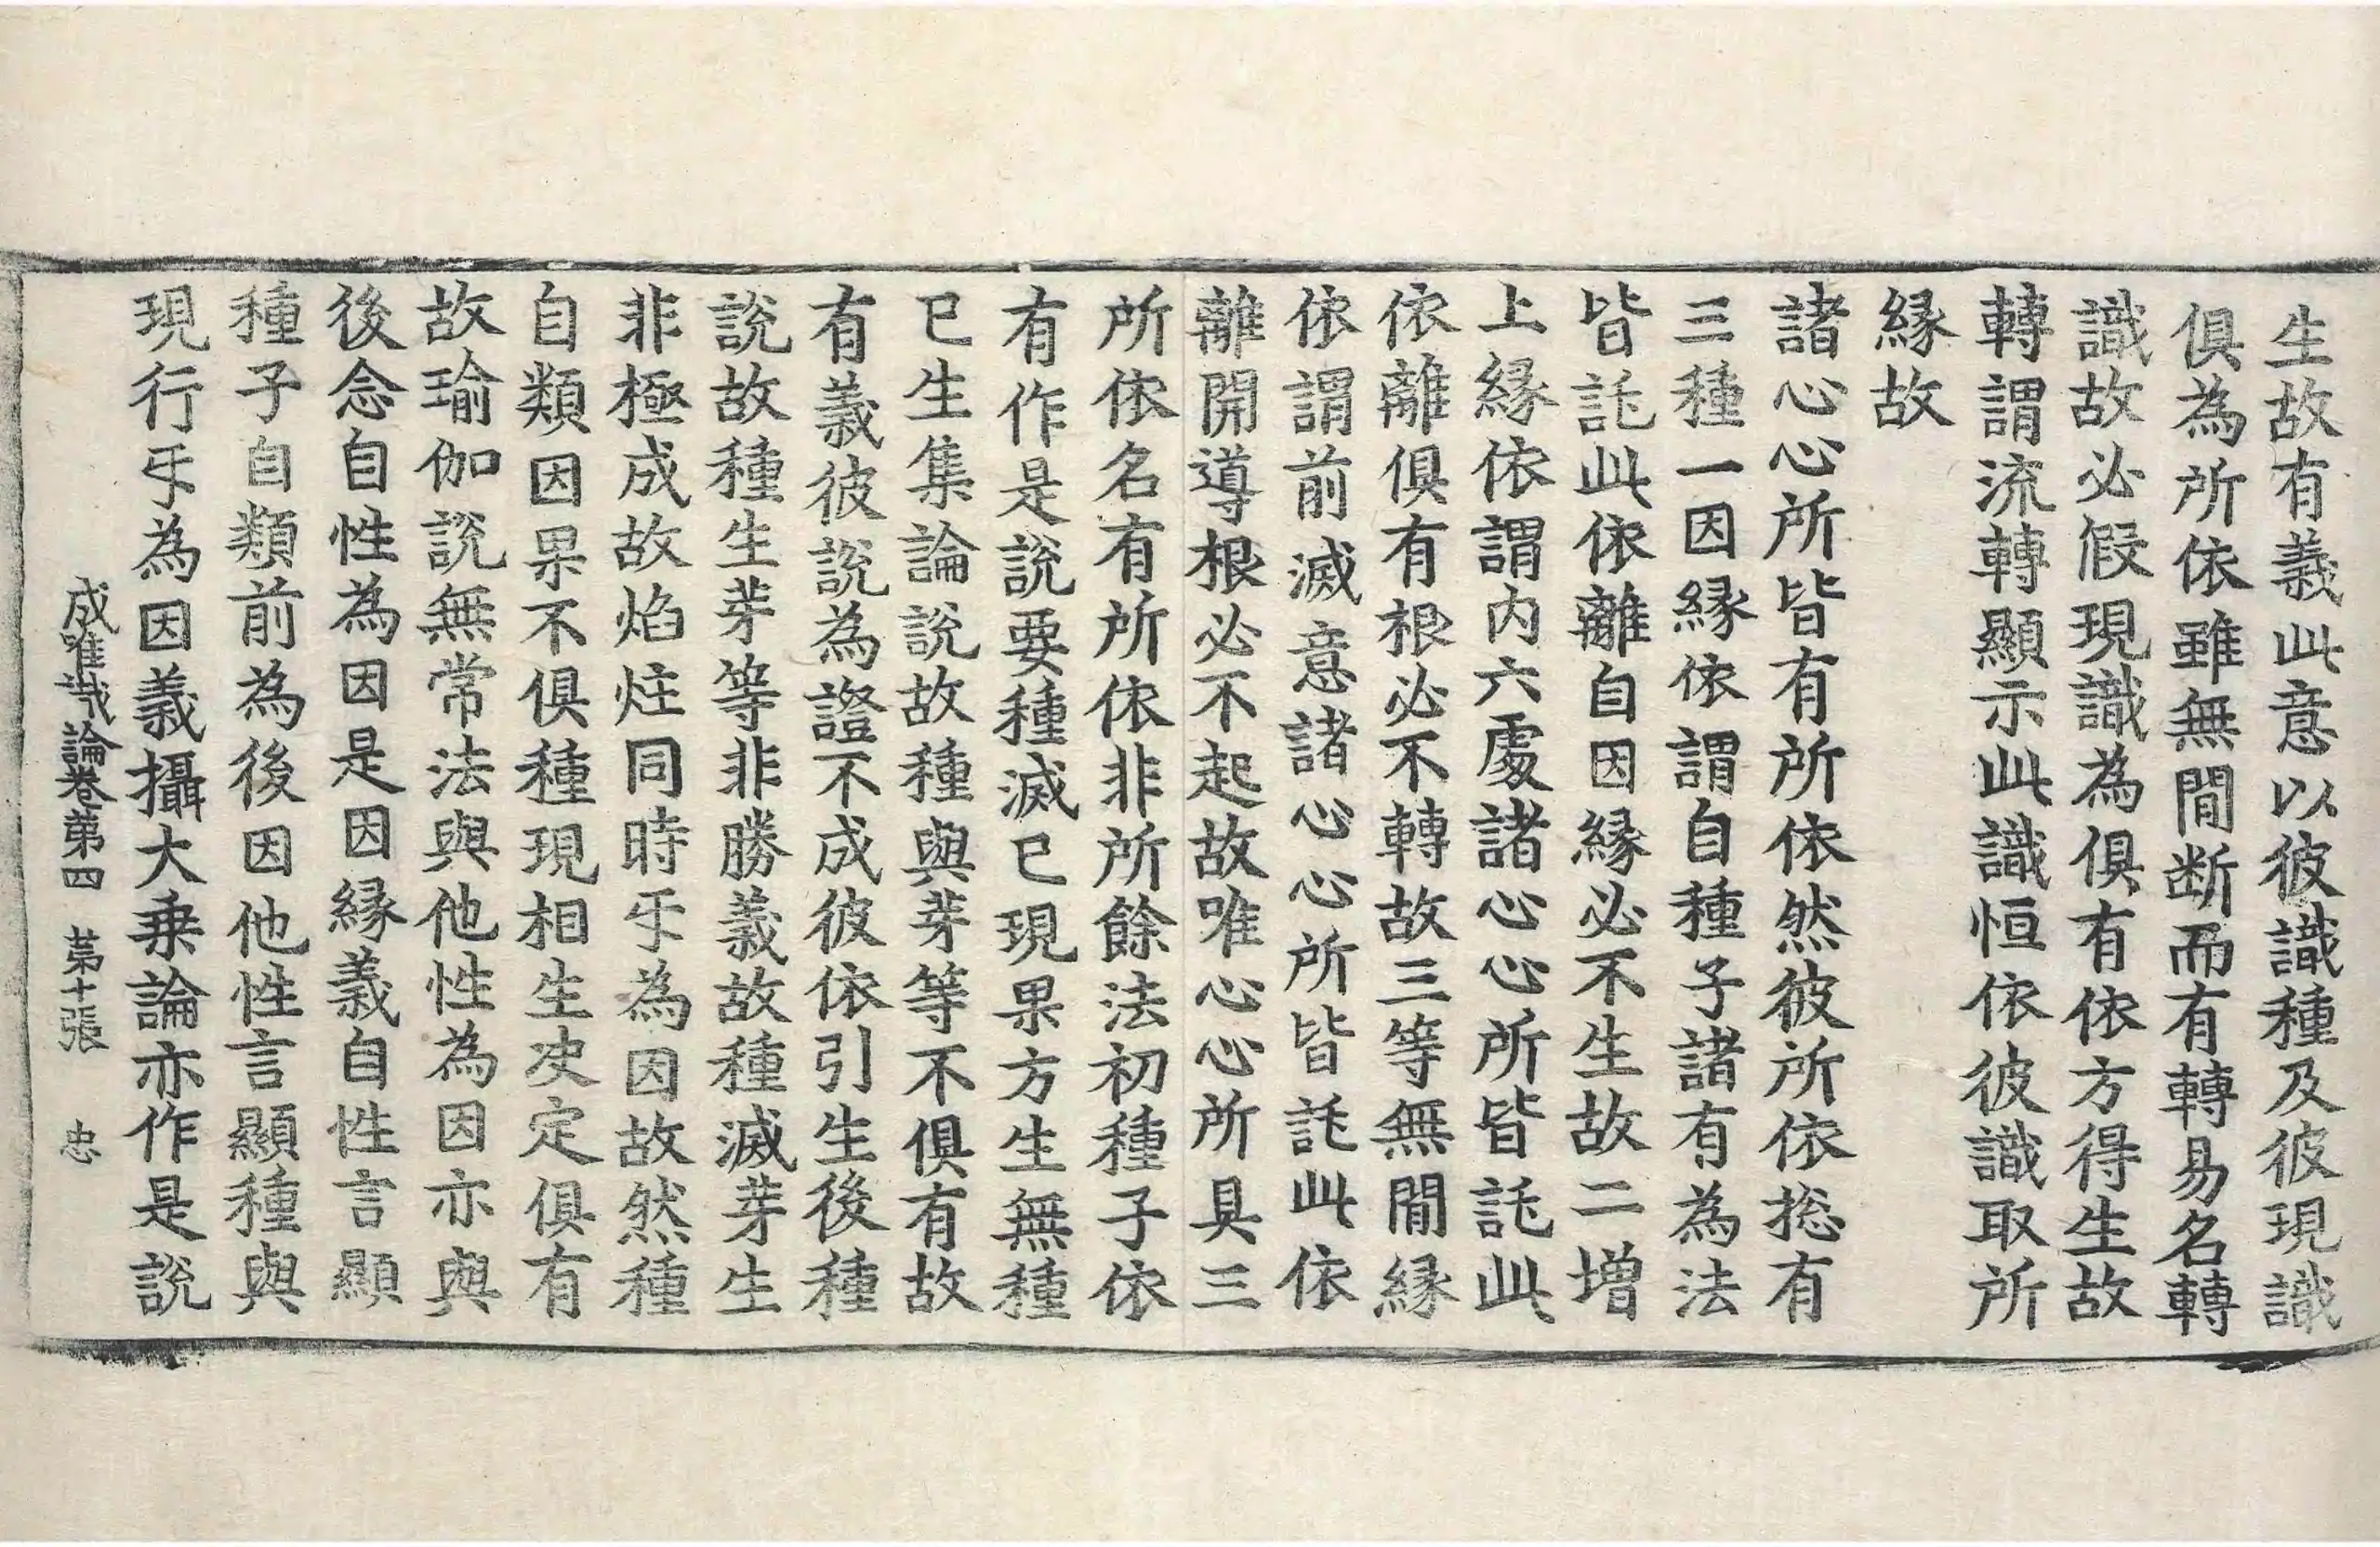 生故有義此意以彼識種及彼現識
俱為所依雖無間断而有轉易名轉
識故必假現識為俱有依方得生故
轉謂流轉顯示此識恒依彼識取所
縁故
諸心心所皆有所依然彼所依揔有
三種一因縁依謂自種子諸有為法
皆託此依離自因縁必不生故二增
上縁依謂内六處諸心心所皆託此
依離俱有根必不轉故三等無間縁
依謂前滅意諸心心所皆託此依
離開導根必不起故唯心心所具三
所依名有所依非所餘法初種子依
有作是說要種滅已現果方生無種
已生集論說故種與芽等不俱有故
有義彼說為證不成彼依引生後種
說故種生芽等非勝義故種滅芽生
非極成故焰炷同時㸦為因故然種
自類因果不俱種現相生决定俱有
故瑜伽說無常法與他性為因亦與
後念自性為因是因縁義自性言顯
種子自類前為後因他性言顯種與
現行㸦為因義攝大乗論亦作是說
成唯識論卷第四 第十張 忠